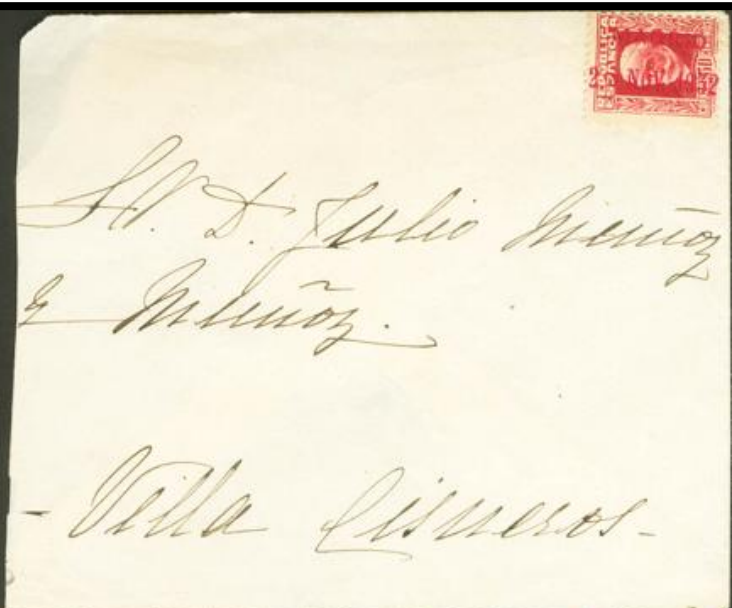 REPÚBLICA
ESPAÑOLA
NOV
Sr. D. Julio Muñoz
y Muñoz.
- Villa Cisneros -